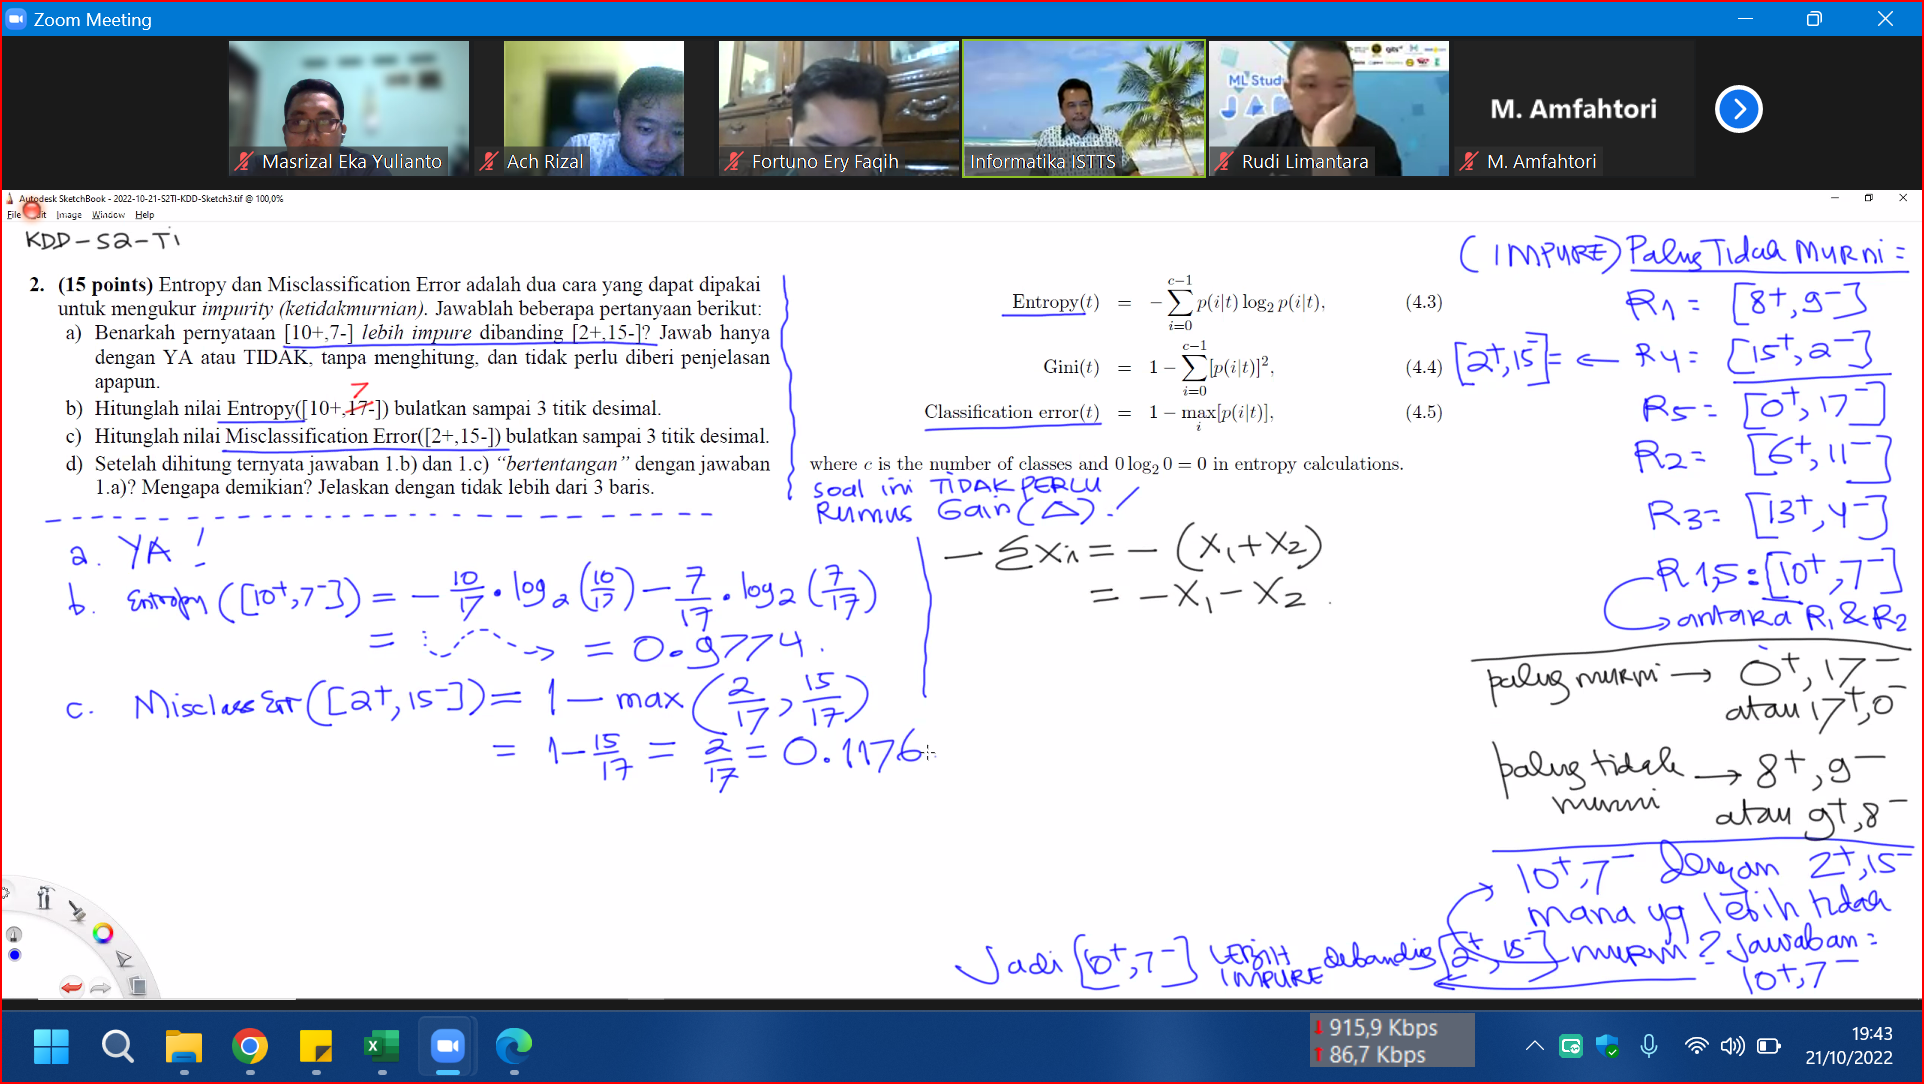 Zoom Meeting
ML Stud
JAM
M. Amfahtori
Masrizal Eka Yulianto
Ach Rizal
Fortuno Ery Faqih
Informatika ISTTS
Rudi Limantara
M. Amfahtori
Autodesk SketchBook - 2022-10-21-S2TI-KDD-Sketch3.tif @ 100,0%
File Edit Image Window Help
KDD-S2-Ti
2. (15 points) Entropy dan Misclassification Error adalah dua cara yang dapat dipakai
untuk mengukur impurity (ketidakmurnian). Jawablah beberapa pertanyaan berikut:
a) Benarkah pernyataan [10+,7-] lebih impure dibanding [2+,15-]? Jawab hanya
dengan YA atau TIDAK, tanpa menghitung, dan tidak perlu diberi penjelasan
apapun.
7
b) Hitunglah nilai Entropy([10+,17-]) bulatkan sampai 3 titik desimal.
c) Hitunglah nilai Misclassification Error([2+,15-]) bulatkan sampai 3 titik desimal.
d) Setelah dihitung ternyata jawaban 1.b) dan 1.c) “bertentangan” dengan jawaban
1.a)? Mengapa demikian? Jelaskan dengan tidak lebih dari 3 baris.
Entropy(t) = − ∑_{i=0}^{c−1} p(i|t) log₂ p(i|t), (4.3)
Gini(t) = 1 − ∑_{i=0}^{c−1} [p(i|t)]², (4.4)
Classification error(t) = 1 − max_i [p(i|t)], (4.5)
where c is the number of classes and 0 log₂ 0 = 0 in entropy calculations.
soal ini TIDAK PERLU
Rumus Gain (△) . !
− ∑xi = − (x₁+x₂)
= −x₁ − x₂ .
a. YA !
b. Entropy ([10⁺,7⁻]) = − 10/17 • log₂ (10/17) − 7/17 • log₂ (7/17)
= = 0.9774.
c. MisclassErr([2⁺,15⁻]) = 1 − max (2/17, 15/17)
= 1 − 15/17 = 2/17 = 0.1176
(IMPURE) Paling Tidak Murni =
R1 = [8⁺,9⁻]
[2⁺,15⁻] = ← R4 = [15⁺,2⁻]
R5 = [0⁺,17⁻]
R2 = [6⁺,11⁻]
R3 = [13⁺,4⁻]
R1,5 : [10⁺,7⁻]
antara R1 & R2
paling murni → 0⁺,17⁻
atau 17⁺,0⁻
paling tidak → 8⁺,9⁻
murni
atau 9⁺,8⁻
10⁺,7⁻ dengan 2⁺,15⁻
mana yg lebih tidak
murni ? Jawaban =
10⁺,7⁻
Jadi [10⁺,7⁻] LEBIH IMPURE dibanding [2⁺,15⁻]
915,9 Kbps
86,7 Kbps
19:43
21/10/2022